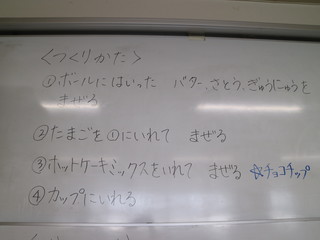 <つくりかた>
①ボールにはいった バター、さとう、ぎゅうにゅうを
まぜる
②たまごを①にいれて まぜる
③ホットケーキミックスをいれて まぜる ☆チョコチップ
④カップにいれる